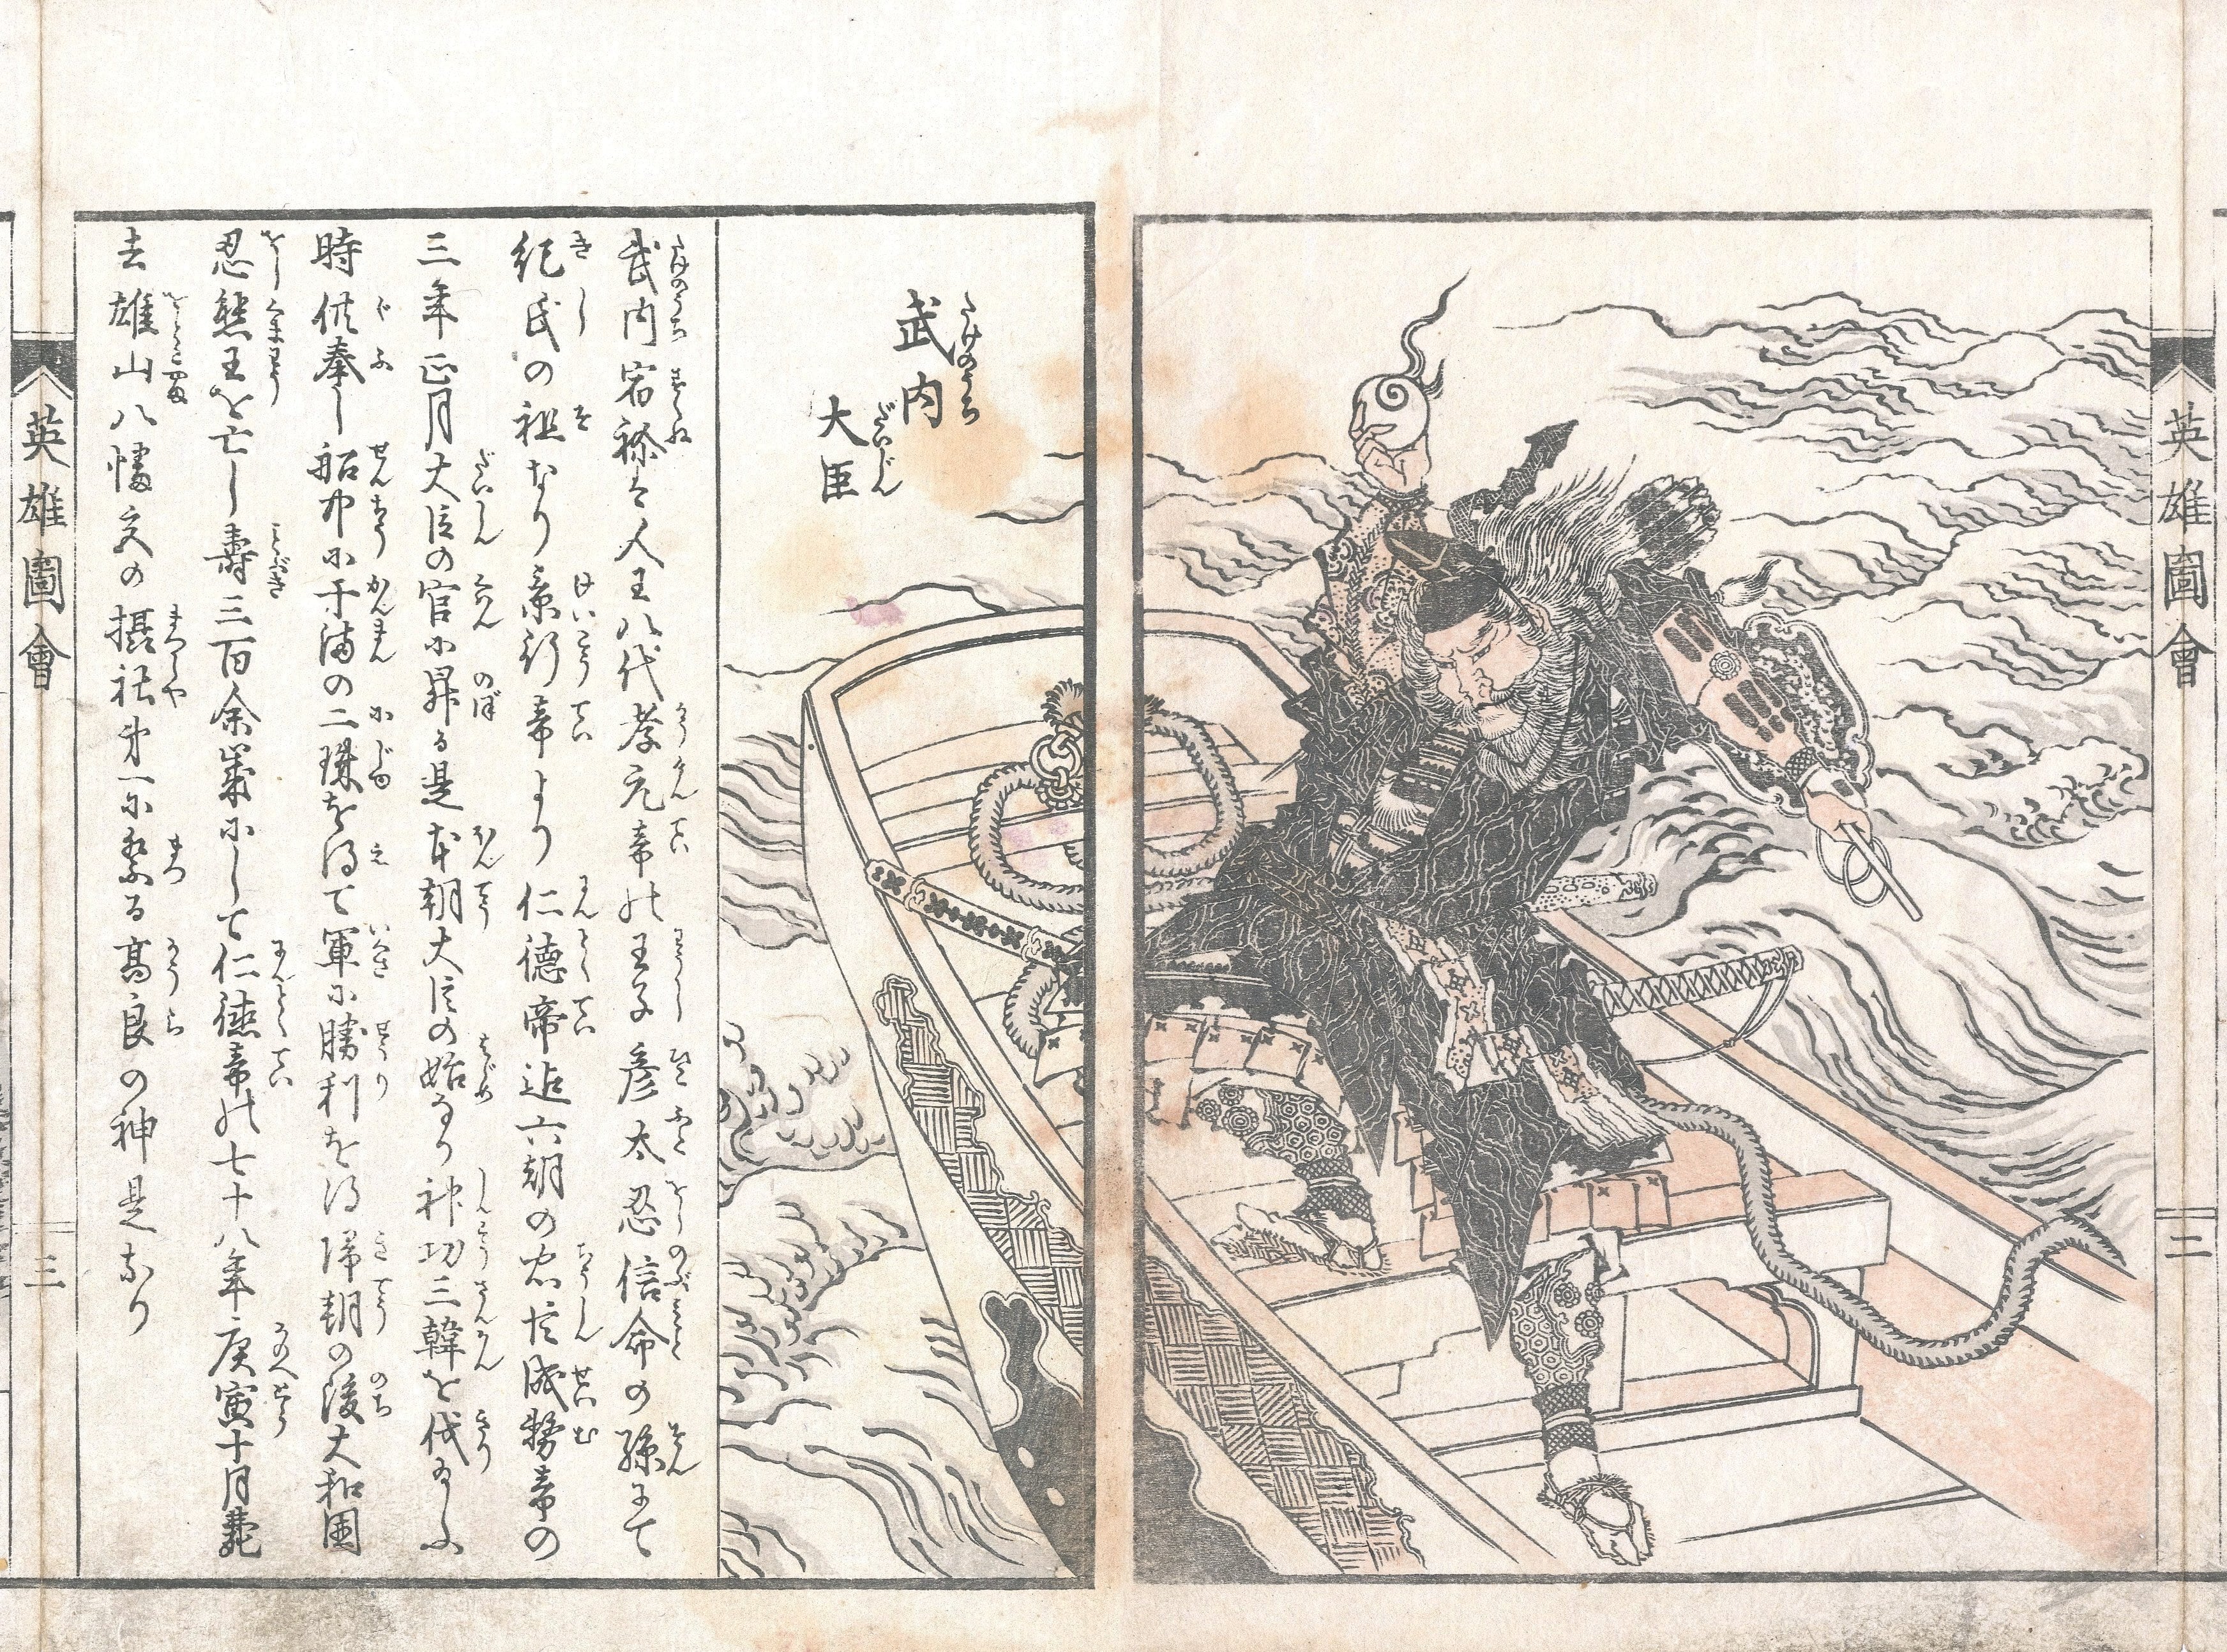 英雄圖會
二
武内
たけのうち
大臣
だいじん
武内宿祢ハ人王八代孝元帝の王子彦太忍信命の孫にて
紀氏の祖なり景行帝より仁徳帝迄六朝の忠臣成務帝の
三年正月大臣の官に昇る是本朝大臣の始なり神功三韓を伐給ふ
時供奉し船中に干満の二珠を得て軍に勝利を得帰朝の後大和国
忍熊王を亡し壽三百余歳にして仁徳帝の七十八年庚寅十月薨
去雄山八幡宮の摂社第一に祭る高良の神是なり
英雄圖會
三